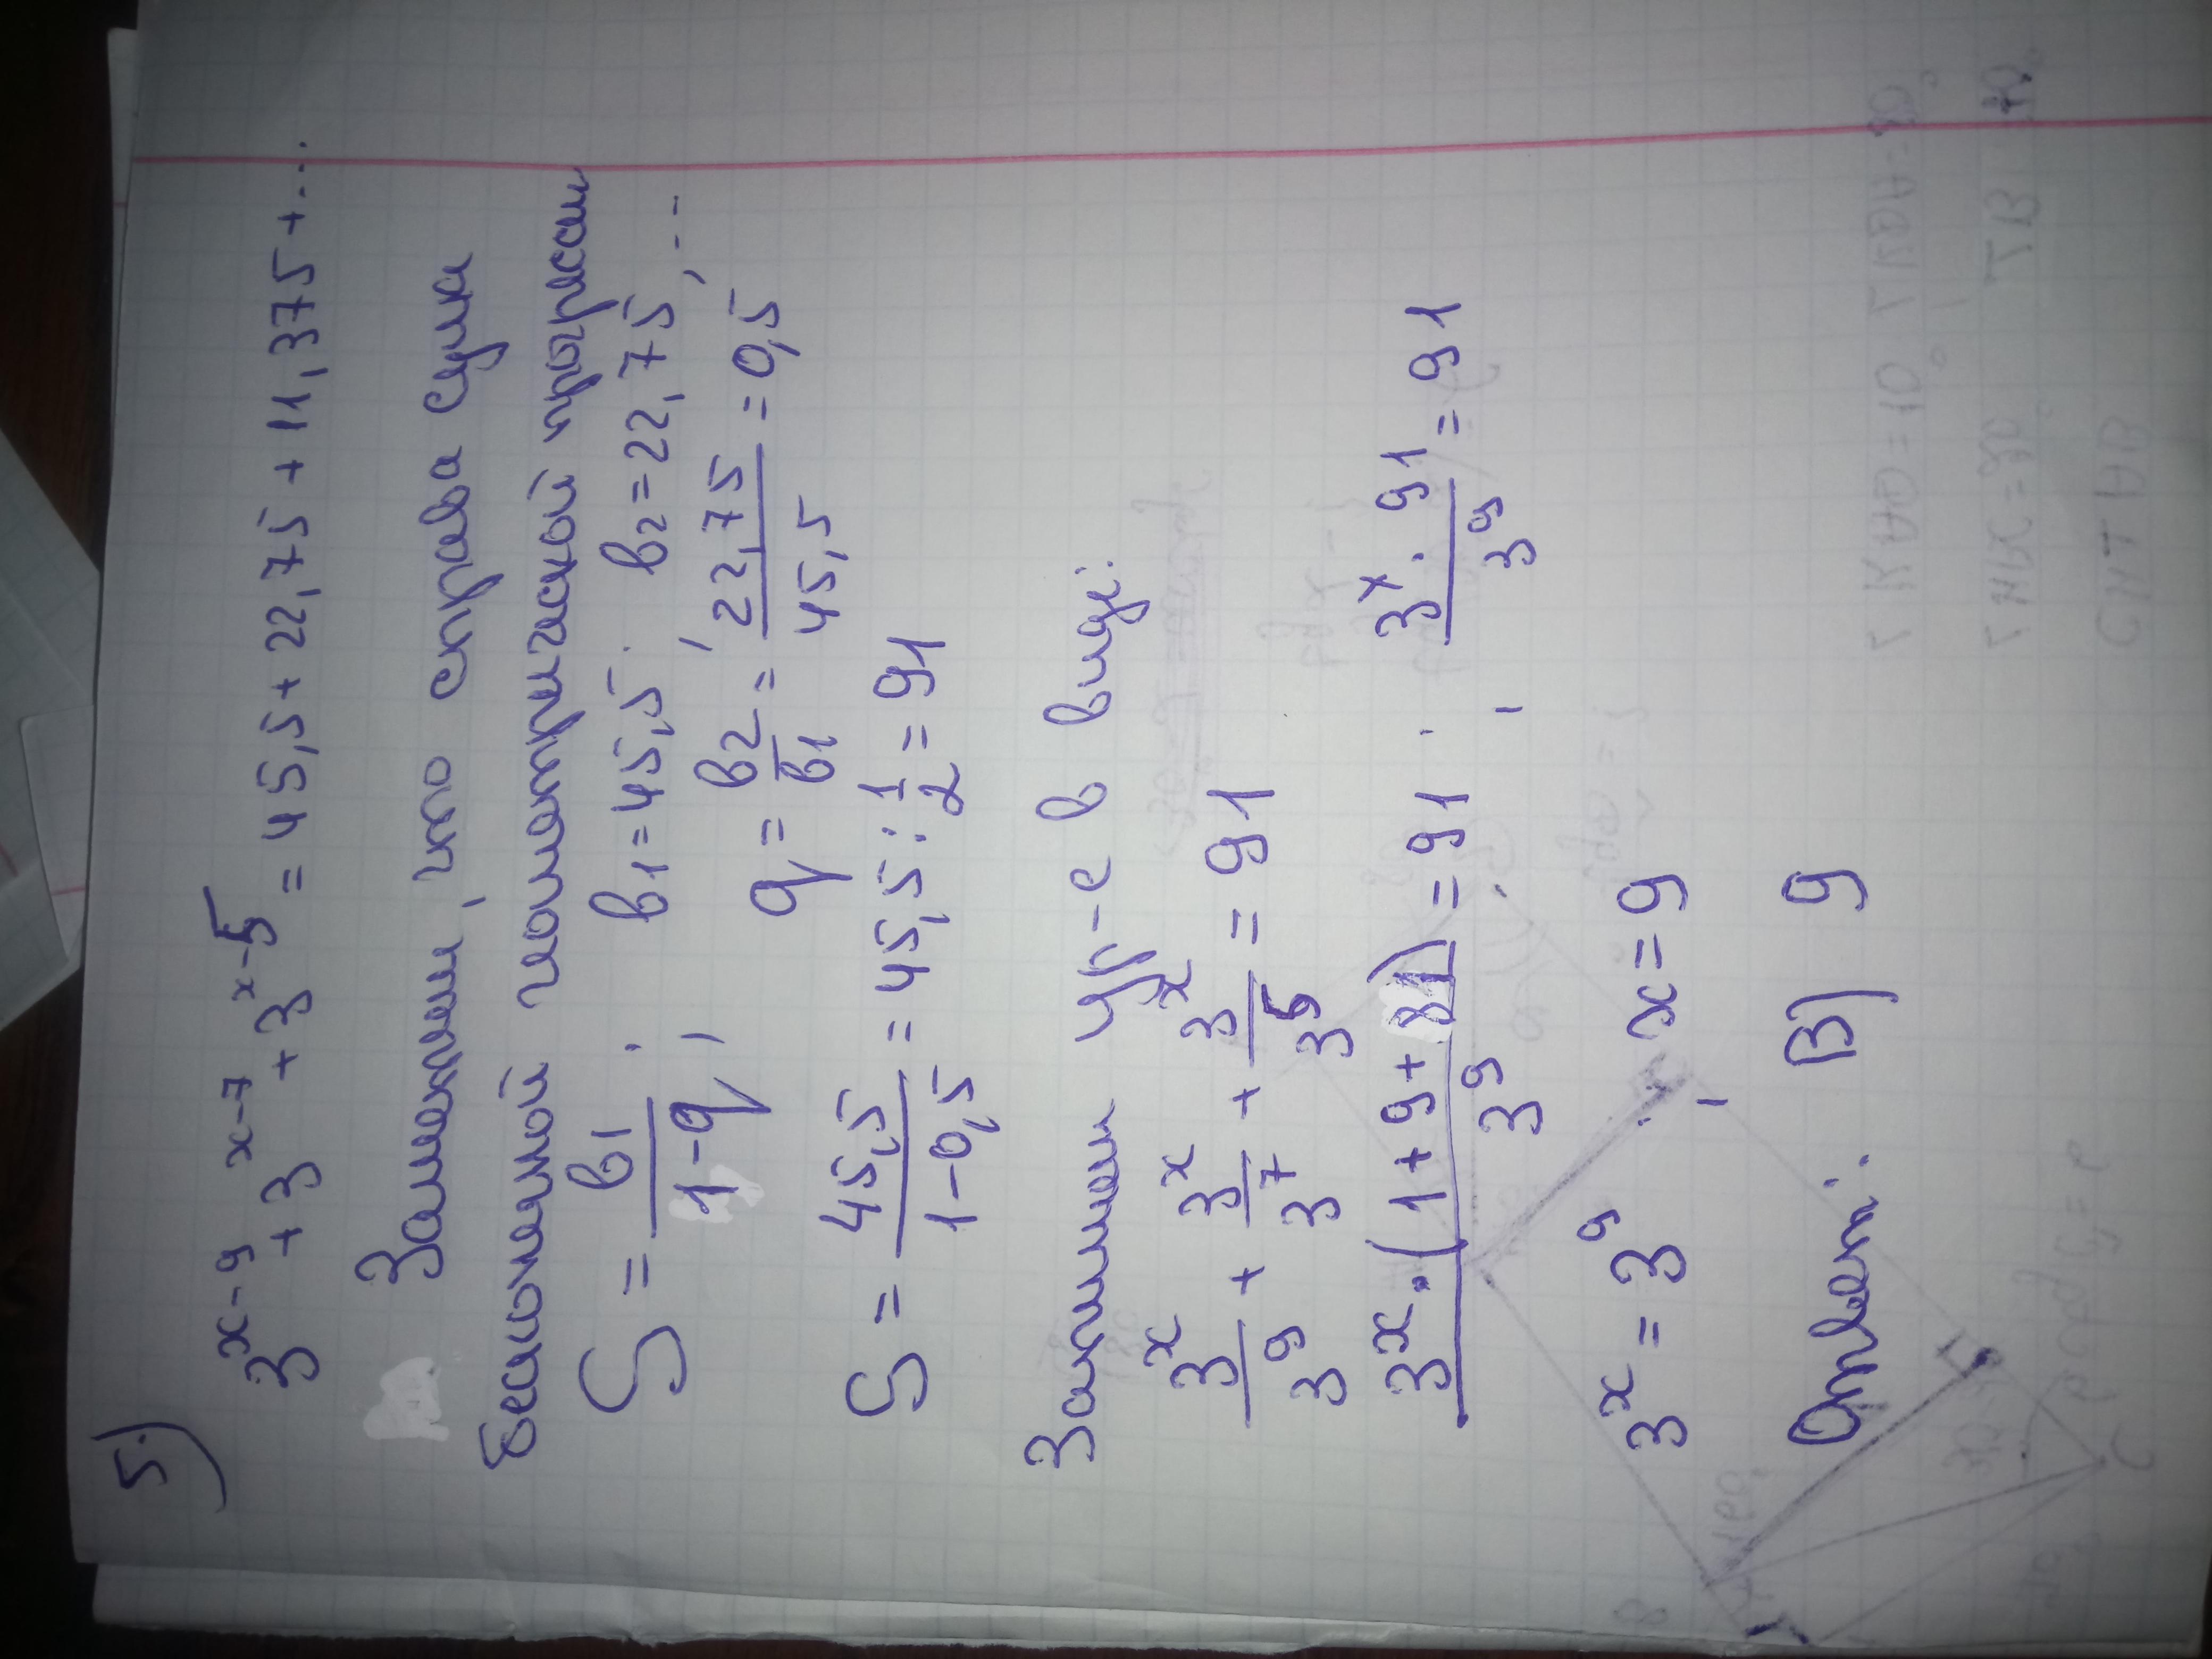 5)
3^{x-9} + 3^{x-7} + 3^{x-5} = 45,5 + 22,75 + 11,375 + ...
Заметим, что справа сума
бесконечной геометрической прогресии
S = \frac{b_1}{1-q}; b_1 = 45,5; b_2 = 22,75, ...
q = \frac{b_2}{b_1} = \frac{22,75}{45,5} = 0,5
S = \frac{45,5}{1-0,5} = 45,5 : \frac{1}{2} = 91
Запишем ур-е в виді:
\frac{3^x}{3^9} + \frac{3^x}{3^7} + \frac{3^x}{3^5} = 91
\frac{3^x \cdot (1+9+81)}{3^9} = 91; \frac{3^x \cdot 91}{3^9} = 91
3^x = 3^9; x = 9
Ответ: В) 9